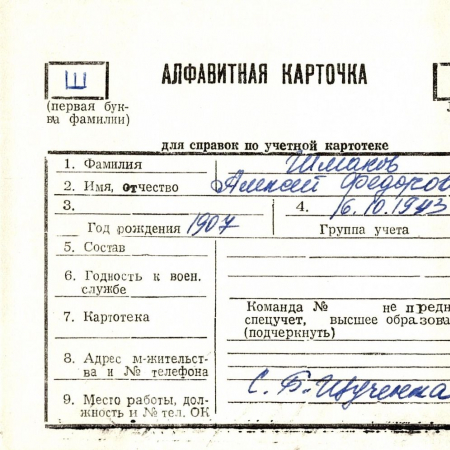 Ш
АЛФАВИТНАЯ КАРТОЧКА
(первая бук-
ва фамилии)
для справок по учетной картотеке
1. Фамилия Шмаков
2. Имя, отчество Алексей Федоров
3. Год рождения 1907
4. 6.10.1943
Группа учета
5. Состав
6. Годность к воен.
службе
7. Картотека
Команда № не предн
спецучет, высшее образова
(подчеркнуть)
8. Адрес м-жительст-
ва и № телефона
9. Место работы, дол-
жность и № тел. ОК
С. Б.